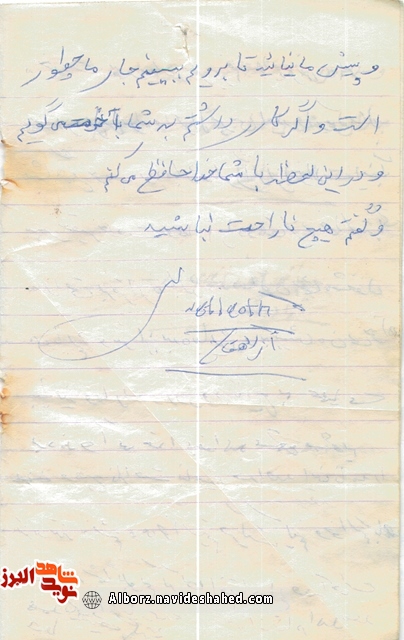 و پیش ما نیائید تا برویم ببینیم جای ما چطور
است و اگر کاری داشتم به شما با می گویم
و در این لحظه با شما خداحافظ می کنم
و گفتم هیچ ناراحت نباشید
شاهد
نوید
البرز
Alborz.navideshahed.com